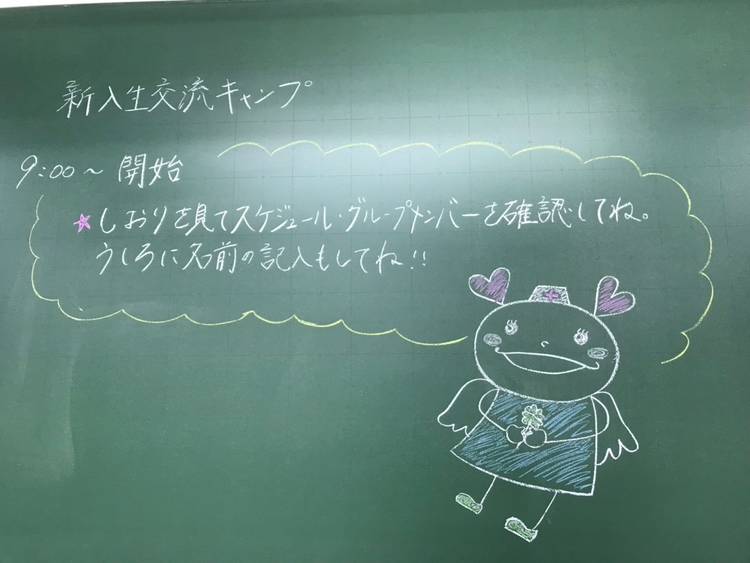 新入生交流キャンプ
9:00~ 開始
★しおりを見てスケジュール・グループメンバーを確認してね。
うしろに名前の記入もしてね!!